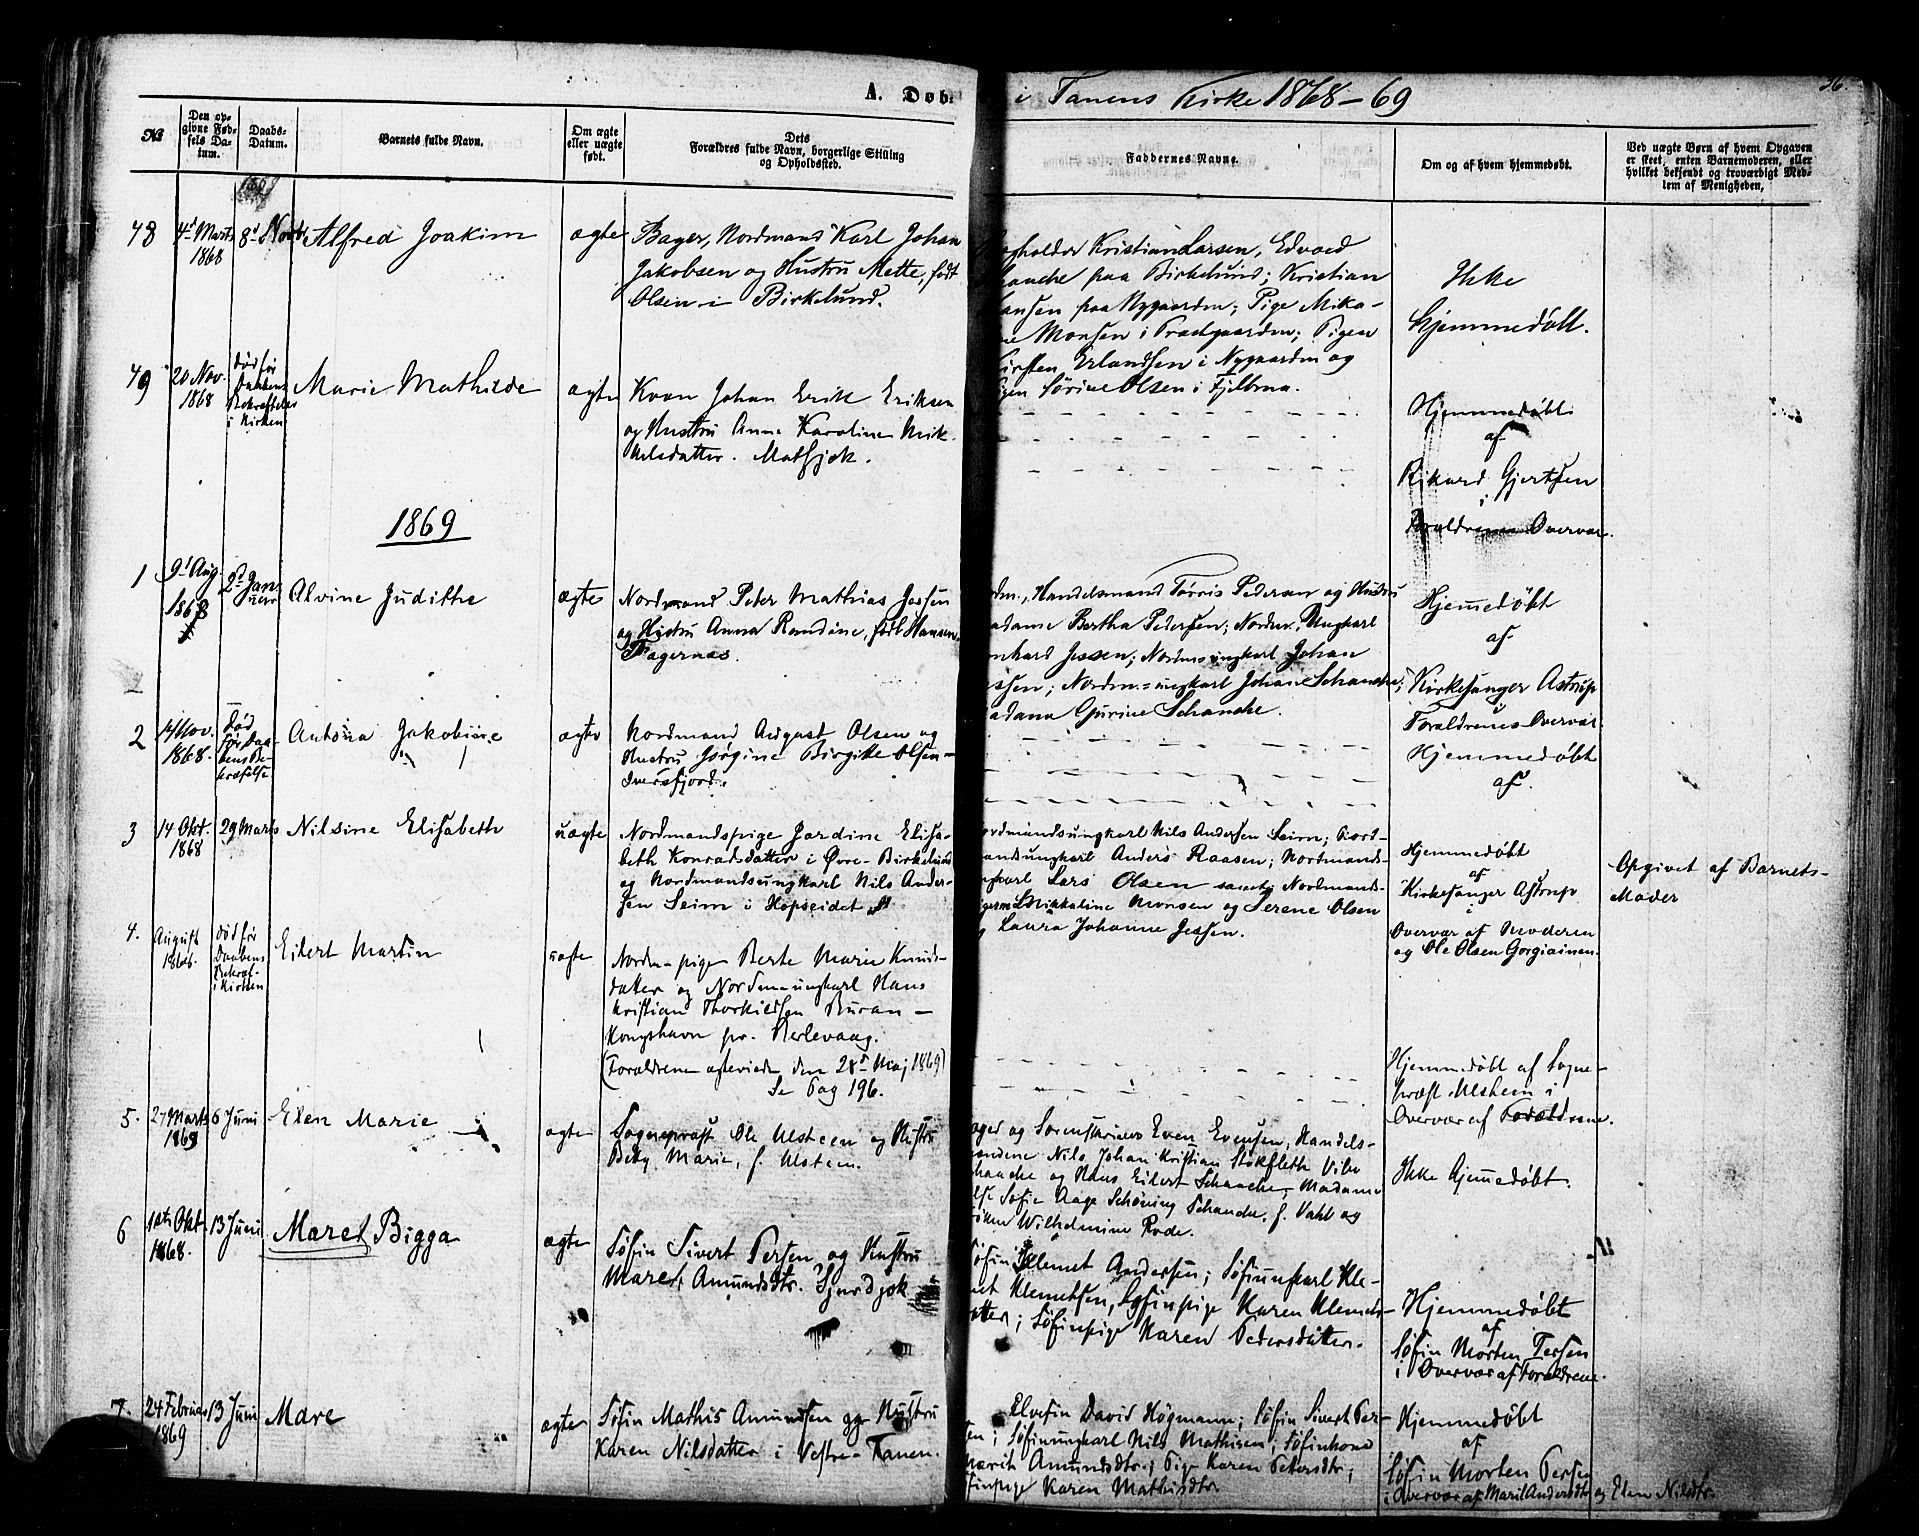 A. Døb.
i Tanens Kirke 1868-69
No
Den op-
givne Fød-
sels Da-
tum.
Daabs-
Datum.
Barnets fulde Navn.
Om ægte
eller uægte
født.
Dets
Forældres fulde Navn, borgerlige Stilling
og Opholdssted.
Faddernes Navne.
Om og af hvem hjemmedøbt.
Ved uægte Børn af hvem Opgaven
er skeet, enten Barnemoderen, eller
hvilket bekjendt og troværdigt Med-
lem af Menigheden.
48
4d Marts
1868
8d Novbr
Alfred Joakim
ægte
Bager, Nordmand Karl Johan
Jakobsen og Hustru Mette, født
Olsen i Birkelund.
Kristian Larsen, Edvard
paa Birkelund; Kristian
paa Nygaarden; Pige Mika-
Monsen i Præstgaarden; Pigen
Kirsten Erlandsen i Nygaarden og
Sørine Olsen i Fjelbma.
Ikke
hjemmedøbt.
49
20 Nov.
1868
død før
Daabens
Bekræftelse
i Kirken
Marie Mathilde
ægte
Kvæn Johan Erik Eriksen
og Hustru Anna Karoline Mik-
kelsdatter. Matsjok.
Hjemmedøbt
af
Rikard Gjertsen
i
Forældrenes Overvær.
1869
1
9d Aug.
1868
2d Jan-
uar
Alvine Judithe
ægte
Nordmand Peter Mathias Jessen
og Hustru Anna Randine, født Hansen.
Fagernæs.
Handelsmand Tørris Pedersen og Hustru
Madame Bertha Pedersen; Nordm. Ungkarl
Jessen; Nordm. ungkarl Johan
Jessen; Nordm. ungkarl Johan Schanche;
Madame Gurine Schanche.
Hjemmedøbt
af
Kirkesanger Astrup
i
Forældrenes Overvær
2
14 Nov.
1868.
Død
før Daa-
bens Be-
kræftelse
Antona Jakobine
ægte
Nordmand August Olsen og
Hustru Jørgine Birgitte Olsen-
Iversfjord.
Hjemmedøbt
af.
3
14 Okt.
1868
29 Marts
Nilsine Elisabeth
uægte
Nordmandspige Jardine Elisa-
beth Konradsdatter i Øvre-Birkelund
og Nordmandsungkarl Nils Ander-
sen Seim i Hopseidet
Nordmandsungkarl Nils Andersen Seim; Nord-
mandsungkarl Anders Raasen; Nordmands-
ungkarl Lars Olsen samt Nordmands-
Mikkaline Monsen og Serene Olsen
og Laura Johanne Jessen.
Hjemmedøbt
af
Kirkesanger Astrup
i
Overvær af Moderen
og Ole Olsen Gorgiainen.
Opgivet af Barnets-
Moder
4.
August
1866.
død før
Daabens
Bekræf-
i Kirken
Eilert Martin
uægte
Nordm-pige Berte Marie Knuds-
datter og Nordm-ungkarl Hans
Kristian Thorkildsen Buran-
Kongshavn pr. Berlevaag.
(Forældrene ægteviede den 28d Maj 1869)
Se Pag 196.
Hjemmedøbt af Sogne-
præst Ulsteen i
Overvær af Forældrene.
5.
27 Marts
1869
6 Juni
Elen Marie
ægte
Sognepræst Ole Ulsteen og Hustru
Betzy Marie, f. Ulsteen.
og Sorenskriver Even Evensen, Handels-
mændene Nils Johan Kristian Stokfleth Vibe
Schanche og Hans Eilert Schanche, Madame
Else Sofie Aage Schøning Schanche, f. Vahl og
Frøken Wilhelmine Rode.
Ikke hjemmedøbt.
6
1ste Okt.
1868.
13 Juni
Maret Bigga
ægte
Søfin Sivert Persen og Hustru
Maret Amundsdtr. Sjurdjok
Søfin Klemet Andersen; Søfinungkarl Kle-
met Klemetsen, Søfinpige Karen Klemets-
datter; Søfinpige Karen Pedersdatter.
Hjemmedøbt
af
Søfin Morten Persen
i Overvær af Forældrene.
7.
24 Februar
1869
13 Juni
Mare
ægte
Søfin Mathis Amundsen og Hustru
Karen Nilsdatter i Vestre-Tanen.
Elvefin David Högmann; Søfin Sivert Per-
sen; Søfinungkarl Nils Mathisen; Søfinkone
Marit Amundsdtr.; Pige Karen Petersdtr;
Søfinpige Karen Mathisdtr.
Hjemmedøbt
af
Søfin Morten Persen
i Overvær af Marit Andersdtr og Elen Nilsdtr.